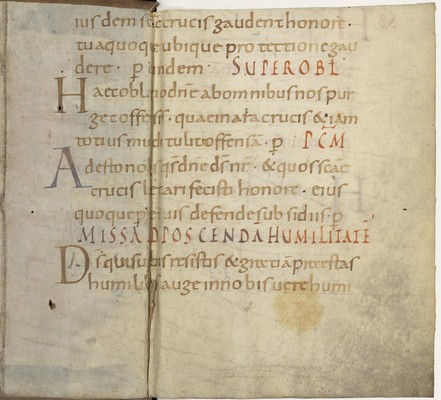 iusdem scae crucis gaudent honore ·
tua quoque ubique protectione gau
dere · p eundem · SUPER OBL
Haec obl qs dne ab omnibus nos pur
get offensis · quae in ara crucis &iam
totius mundi tulit offensa · p PCM
Adesto nobis qs dne ds nr · & quos scae
crucis letari fecisti honore · eius
quoque p&uis defende subsidiis · p
MISSA AD POSCENDA HUMILITATE
Ds qui superbis resistis & gratia praestas
humilibus auge in nobis uere humi